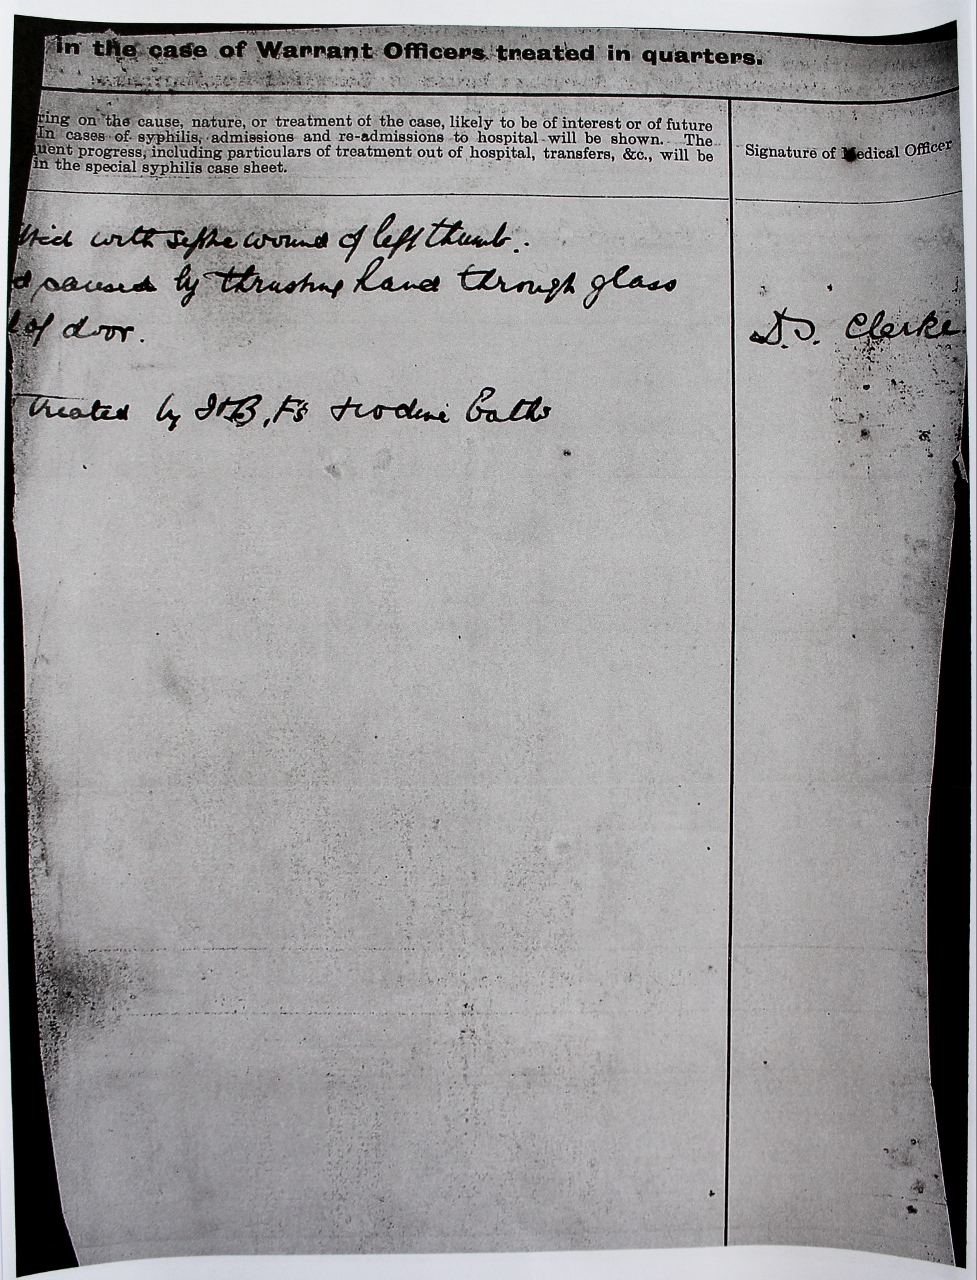 in the case of Warrant Officers treated in quarters.
ring on the cause, nature, or treatment of the case, likely to be of interest or of future
In cases of syphilis, admissions and re-admissions to hospital will be shown. The
quent progress, including particulars of treatment out of hospital, transfers, &c., will be
in the special syphilis case sheet.
Signature of Medical Officer
with septic wound of left thumb.
d caused by thrusting hand through glass
of door.
D.D. Clerke
treated by baths